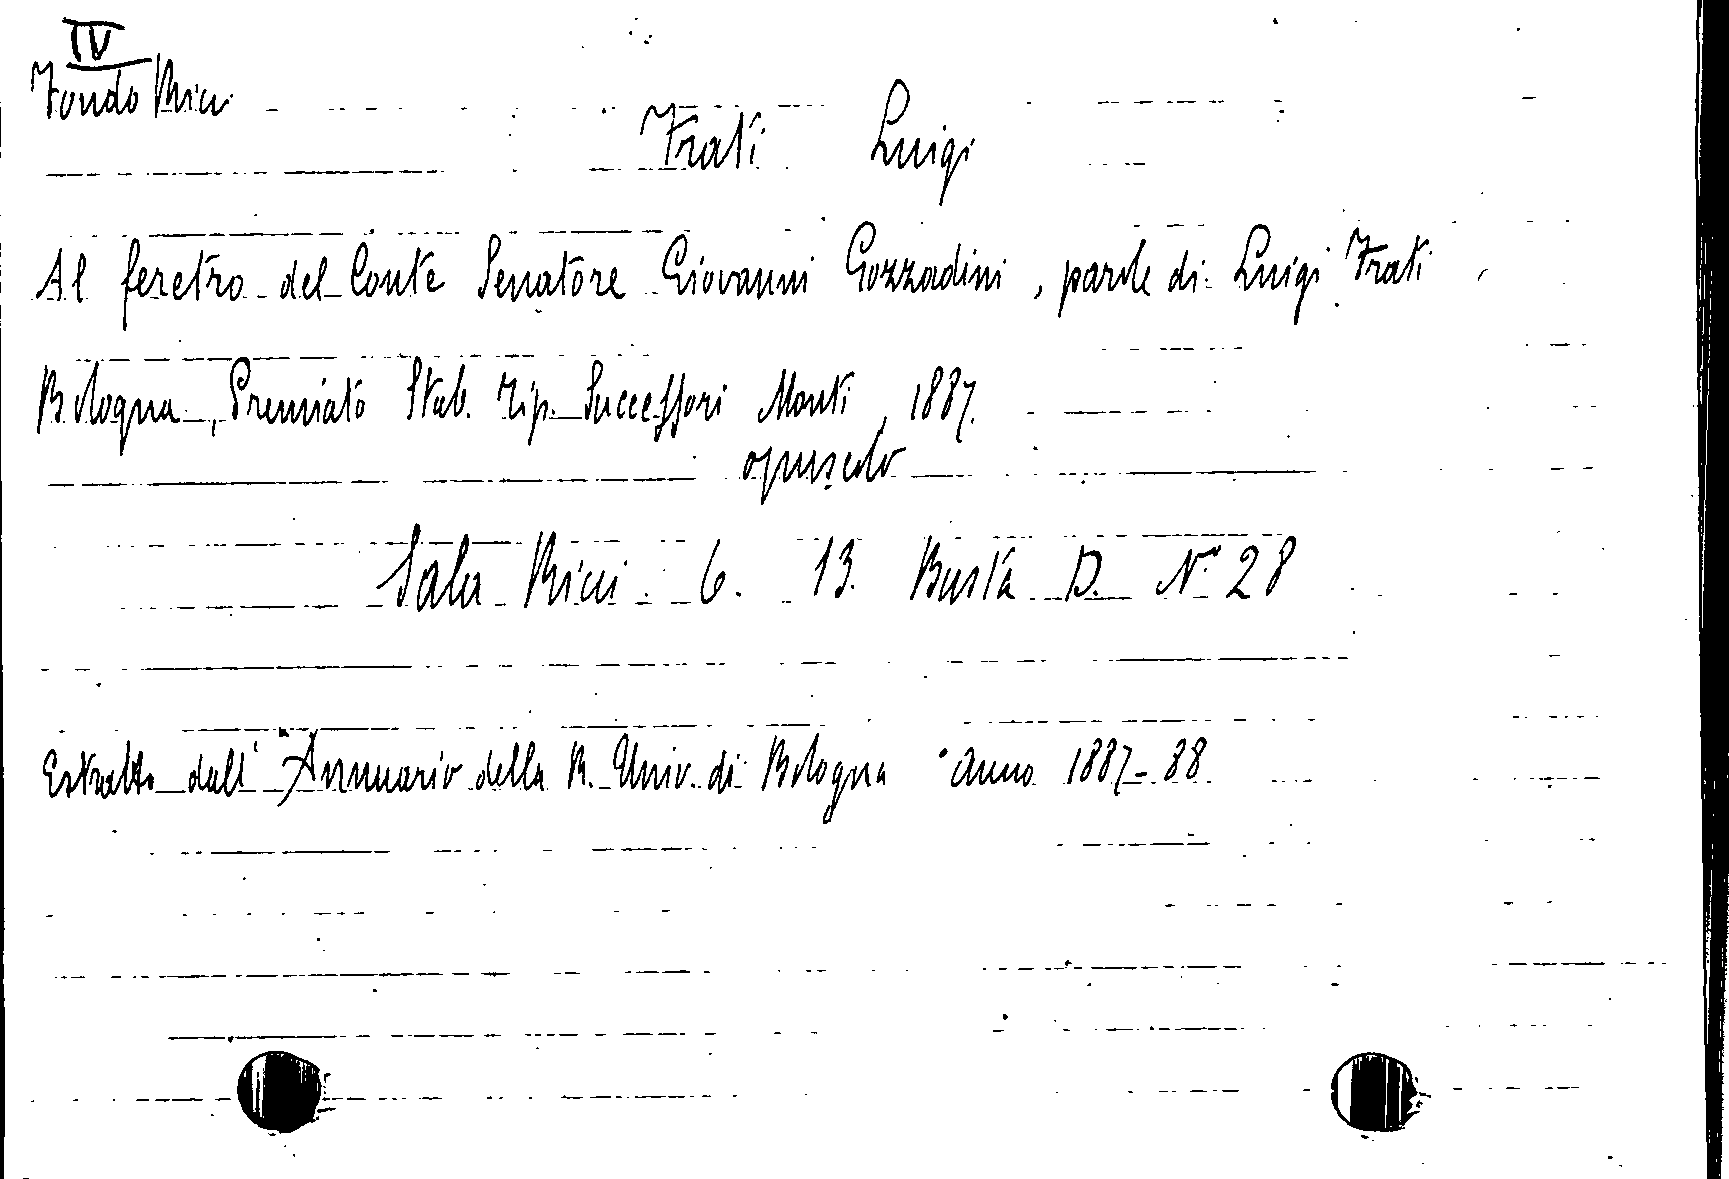 IV
Fondo Ricci
Frati Luigi
Al feretro del Conte Senatore Giovanni Gozzadini, parole di Luigi Frati
Bologna, Premiato Stab. Tip. Successori Monti, 1887.
opuscolo
Sala Ricci. 6. 13. Busta D. N° 28
Estratto dall' Annuario della R. Univ. di Bologna anno 1887-88